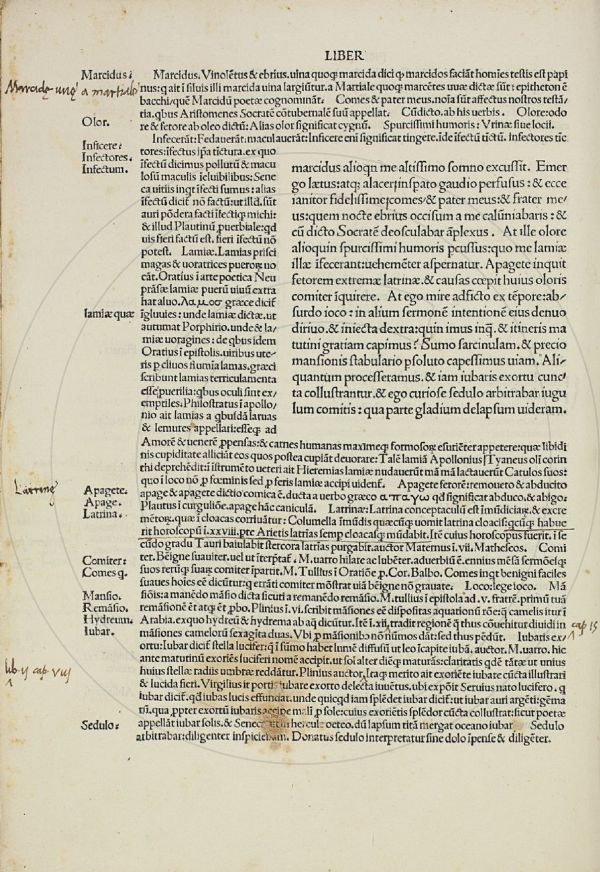 LIBER
Marcidus: Marcidus. Vinolētus & ebrius. uina quoq; marcida dici q; marcidos faciāt homīes testis est papi
Marcidę unę a martiale nius: q ait i siluis illi marcida uina largiūtur. a Martiale quoq; marcētes uuæ dictæ sūt: epitheton ē
bacchi/quē Marcidū poetæ cognomināt. Comes & pater meus. noīa sūt affectus nostros testā/
Olor. tia. qbus Aristomenes Socratē cōtubernalē suū appellat. Cū dicto. ab his uerbis. Olore: odo
re & fetore ab oleo dictū: Alias olor significat cygnū. Spurcissimi humoris: Vrinæ siue locii.
Inficere: Infecerāt: Fedauerāt: maculauerāt: Inficere eni significat tingere. ide īfectū tictū. īnfectores tic
Infectores. tores: īfectus ipa tictura. ex quo
Infectum. īfectū dicimus pollutū & macu
losū maculis ieluibilibus: Sene
ca uitiis ingt īfecti sumus: alias
īfectū dicif nō factū: ut illd. sūt
auri pōdera facti īfectiq; michi:
& illud Plautinū puerbiale: qd
uis fieri factū est. fieri īfectū nō
potest. Lamiæ. Lamias prisci
magas & uoratrices puerorū uo
cāt. Oratius i arte poetica Neu
prāsæ lamiæ puerū uiuū extra
hat aluo. Λαμος græce dicif
lamiæ quæ īgluuies: unde lamiæ dictæ. ut
autumat Porphirio. unde & la/
miæ uoragines: de qbus idem
Oratius ī epistolis. uiribus ute/
ris p cliuos flumīa lamas. græci
scribunt lamias terriculamenta
esse puerilia: qbus oculi sunt ex/
emptiles. Philostratus i apollo/
nio ait lamias a qbusdā laruas
& lemures appellari: esseq; ad
marcidus alioqn me altissimo somno excussit. Emer
go lætus: atq; alacer īnspato gaudio perfusus: & ecce
ianitor fidelissime: comes/& pater meus: & frater me/
us: quem nocte ebrius occisum a me calūniabaris: &
cū dicto Socratē deosculabar āplexus. At ille olore
alioquin spurcissimi humoris pcussus: quo me lamiæ
illæ ifecerant: uehemēter aspernatur. Apagete inquit
fetorem extremæ latrinæ. & causas cœpit huius oloris
comiter īquirere. At ego mire adficto ex tēpore: ab/
surdo ioco: in alium sermonē intentionē eius denuo
diriuo. & iniecta dextra: quin imus inq. & itineris ma
tutini gratiam capimus? Sumo sarcinulam. & precio
mansionis stabulario psoluto capessimus uiam. Ali/
quantum processeramus. & iam iubaris exortu cunc/
ta collustrantur. & ego curiose sedulo arbitrabar iugu
lum comitis: qua parte gladium delapsum uideram.
Amorē & uenerē ppensas: & carnes humanas maxime q; formosorū esuriēter appetere: quæ libidi
nis cupiditate alliciāt eos quos postea cupiāt deuorare: Talē lamiā Apollonius Tyaneus oli corin
thi deprehēdit: ī īstrumēto ueteri ait Hieremias lamiæ nudauerūt māmā lactauerūt Catulos suos:
quo i loco nō p fœminis sed p feris lamiæ accipi uidenf. Apagete feforē: remoueto & abducito
Latrinę Apagete: apage & apagete dictio comica ē. ducta a uerbo græco απαγω qd significat abduco. & abigo.
Apage. Plautus i curguliōe. apage hāc caniculā. Latrinæ: Latrina conceptaculū est īmūdiciarū. & excre
Latrina. mētorū. quæ i cloacas corriuātur: Columella īmūdis quæcūq; uomit latrina cloacis: qcūq; habue
rit horoscopū i. xxviii. pte Arietis latrīas semp cloacasq; mūdabit. Itē cuius horoscopus fuerit. i se
cūdo gradu Tauri baiulabit stercora latrīas purgabit. auctor Maternus i. vii. Matheseos. Comi
Comiter: ter. Beigne suauiter. uel ut īterptaf. M. uarro hilare ac lubēter. aduerbiū ē. ennius mēsā sermōesq;
Comes q. suos rerūq; suarū comiter ipartit. M. Tullius i Oratiōe p. Cor. Balbo. Comes ingt benigni faciles
suaues hoīes eē dicūtur: q errāti comiter mōstrāt uiā bēigne nō grauate. Loco: lege ioco. Mā
Mansio. siōis: a manēdo māsio dicta sicuti a remanēdo remāsio. M. tullius i epistola ad. v. fratrē. primū tuā
Remāsio. remāsionē ēt atq; ēt pbo. Plinius i. vi. scribit māsiones eē dispositas aquationū rōe: q camelis itur ī
Hydreum. Arabia. exquo hydreū & hydrema ab aq dicūtur. Itē i. xii. tradit regionē q thus couehitur diuidi in
Iubar. māsiones camelorū sexagīta duas. Vbi p māsionibꝫ nō nūmos dāt: sed thus pēdūt. Iubaris ex/ cap 15
ortu: Iubar dicif stella lucifer: q ī sūmo habet lumē diffusū ut leo īcapite iubā. auctor. M. uarro. hic
ante matutinū exoriēs luciferi nomē accipit. ut sol alter diēq; maturās: claritatis qdē tātæ ut unius
lib ij cap viij huius stellæ radiis umbræ reddātur. Plinius auctor. Itaq; merito ait exoriēte iubare cūcta illustrari
& lucida fieri. Virgilius it portis iubare exorto delecta iuuētus. ubi expōit Seruius nato lucifero. q
iubar dicif. qd iubas lucis effunciat. unde quicqd iam splēdet iubar dicif: ut iubar auri argēti: gēma
rū. qua ppter exortū iubaris accipe mali p sole: cuius exoriētis splēdor cūcta collustrat: sicut poetæ
Sedulo: appellāt iubar solis. & Senec in hercul: oeteo. dū lapsum rtā mergat oceano iubar Sedulo
arbitrabar: diligenter inspiciebam. Donatus sedulo interpretatur sine dolo īpense & diligēter.